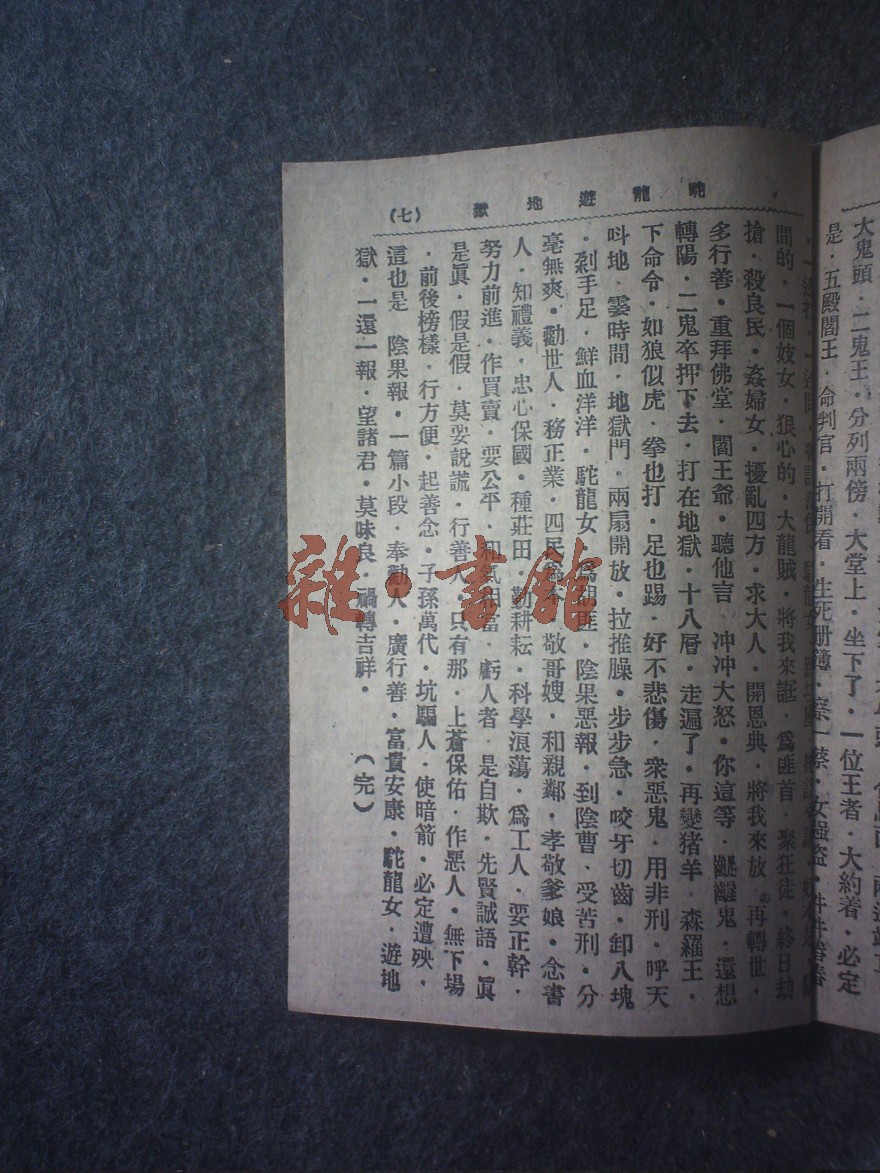 大鬼頭．二鬼王．分列兩傍．大堂上．坐下了．一位王者．大約着．必定
是．五殿閻王．命判官．打開看．生死册簿．察一察．女强盗．件件書
駝龍遊地獄
（七）
間的．一個妓女．狠心的．大龍賊．將我來誆．爲匪首．聚狂徒．終日劫
搶．殺良民．姦婦女．擾亂四方．求大人．開恩典．將我來放．再轉世．
多行善．重拜佛堂．閻王爺．聽他言．沖沖大怒．你這等．齷齪鬼．還想
轉陽．二鬼卒押下去．打在地獄．十八層．走遍了．再變猪羊．森羅王．
下命令．如狼似虎．拳也打．足也踢．好不悲傷．衆惡鬼．用非刑．呼天
呌地．霎時間．地獄門．兩扇開放．拉推臊．步步急．咬牙切齒．卸八塊
．剁手足．鮮血洋洋．駝龍女．爲胡匪．陰果惡報．到陰曹．受苦刑．分
毫無爽．勸世人．務正業．四民爲本．敬哥嫂．和親鄰．孝敬爹娘．念書
人．知禮義．忠心保國．種莊田．勤耕耘．科學浪蕩．爲工人．要正幹．
努力前進．作買賣．要公平．和氣相當．虧人者．是自欺．先賢誠語．眞
是眞．假是假．莫要說謊．行善人．只有那．上蒼保佑．作惡人．無下塲
．前後榜樣．行方便．起善念．子孫萬代．坑騙人．使暗箭．必定遭殃．
這也是．陰果報．一篇小段．奉勸人．廣行善．富貴安康．駝龍女．遊地
獄．一還一報．望諸君．莫味良．禍轉吉祥．　（完）
雜·書館